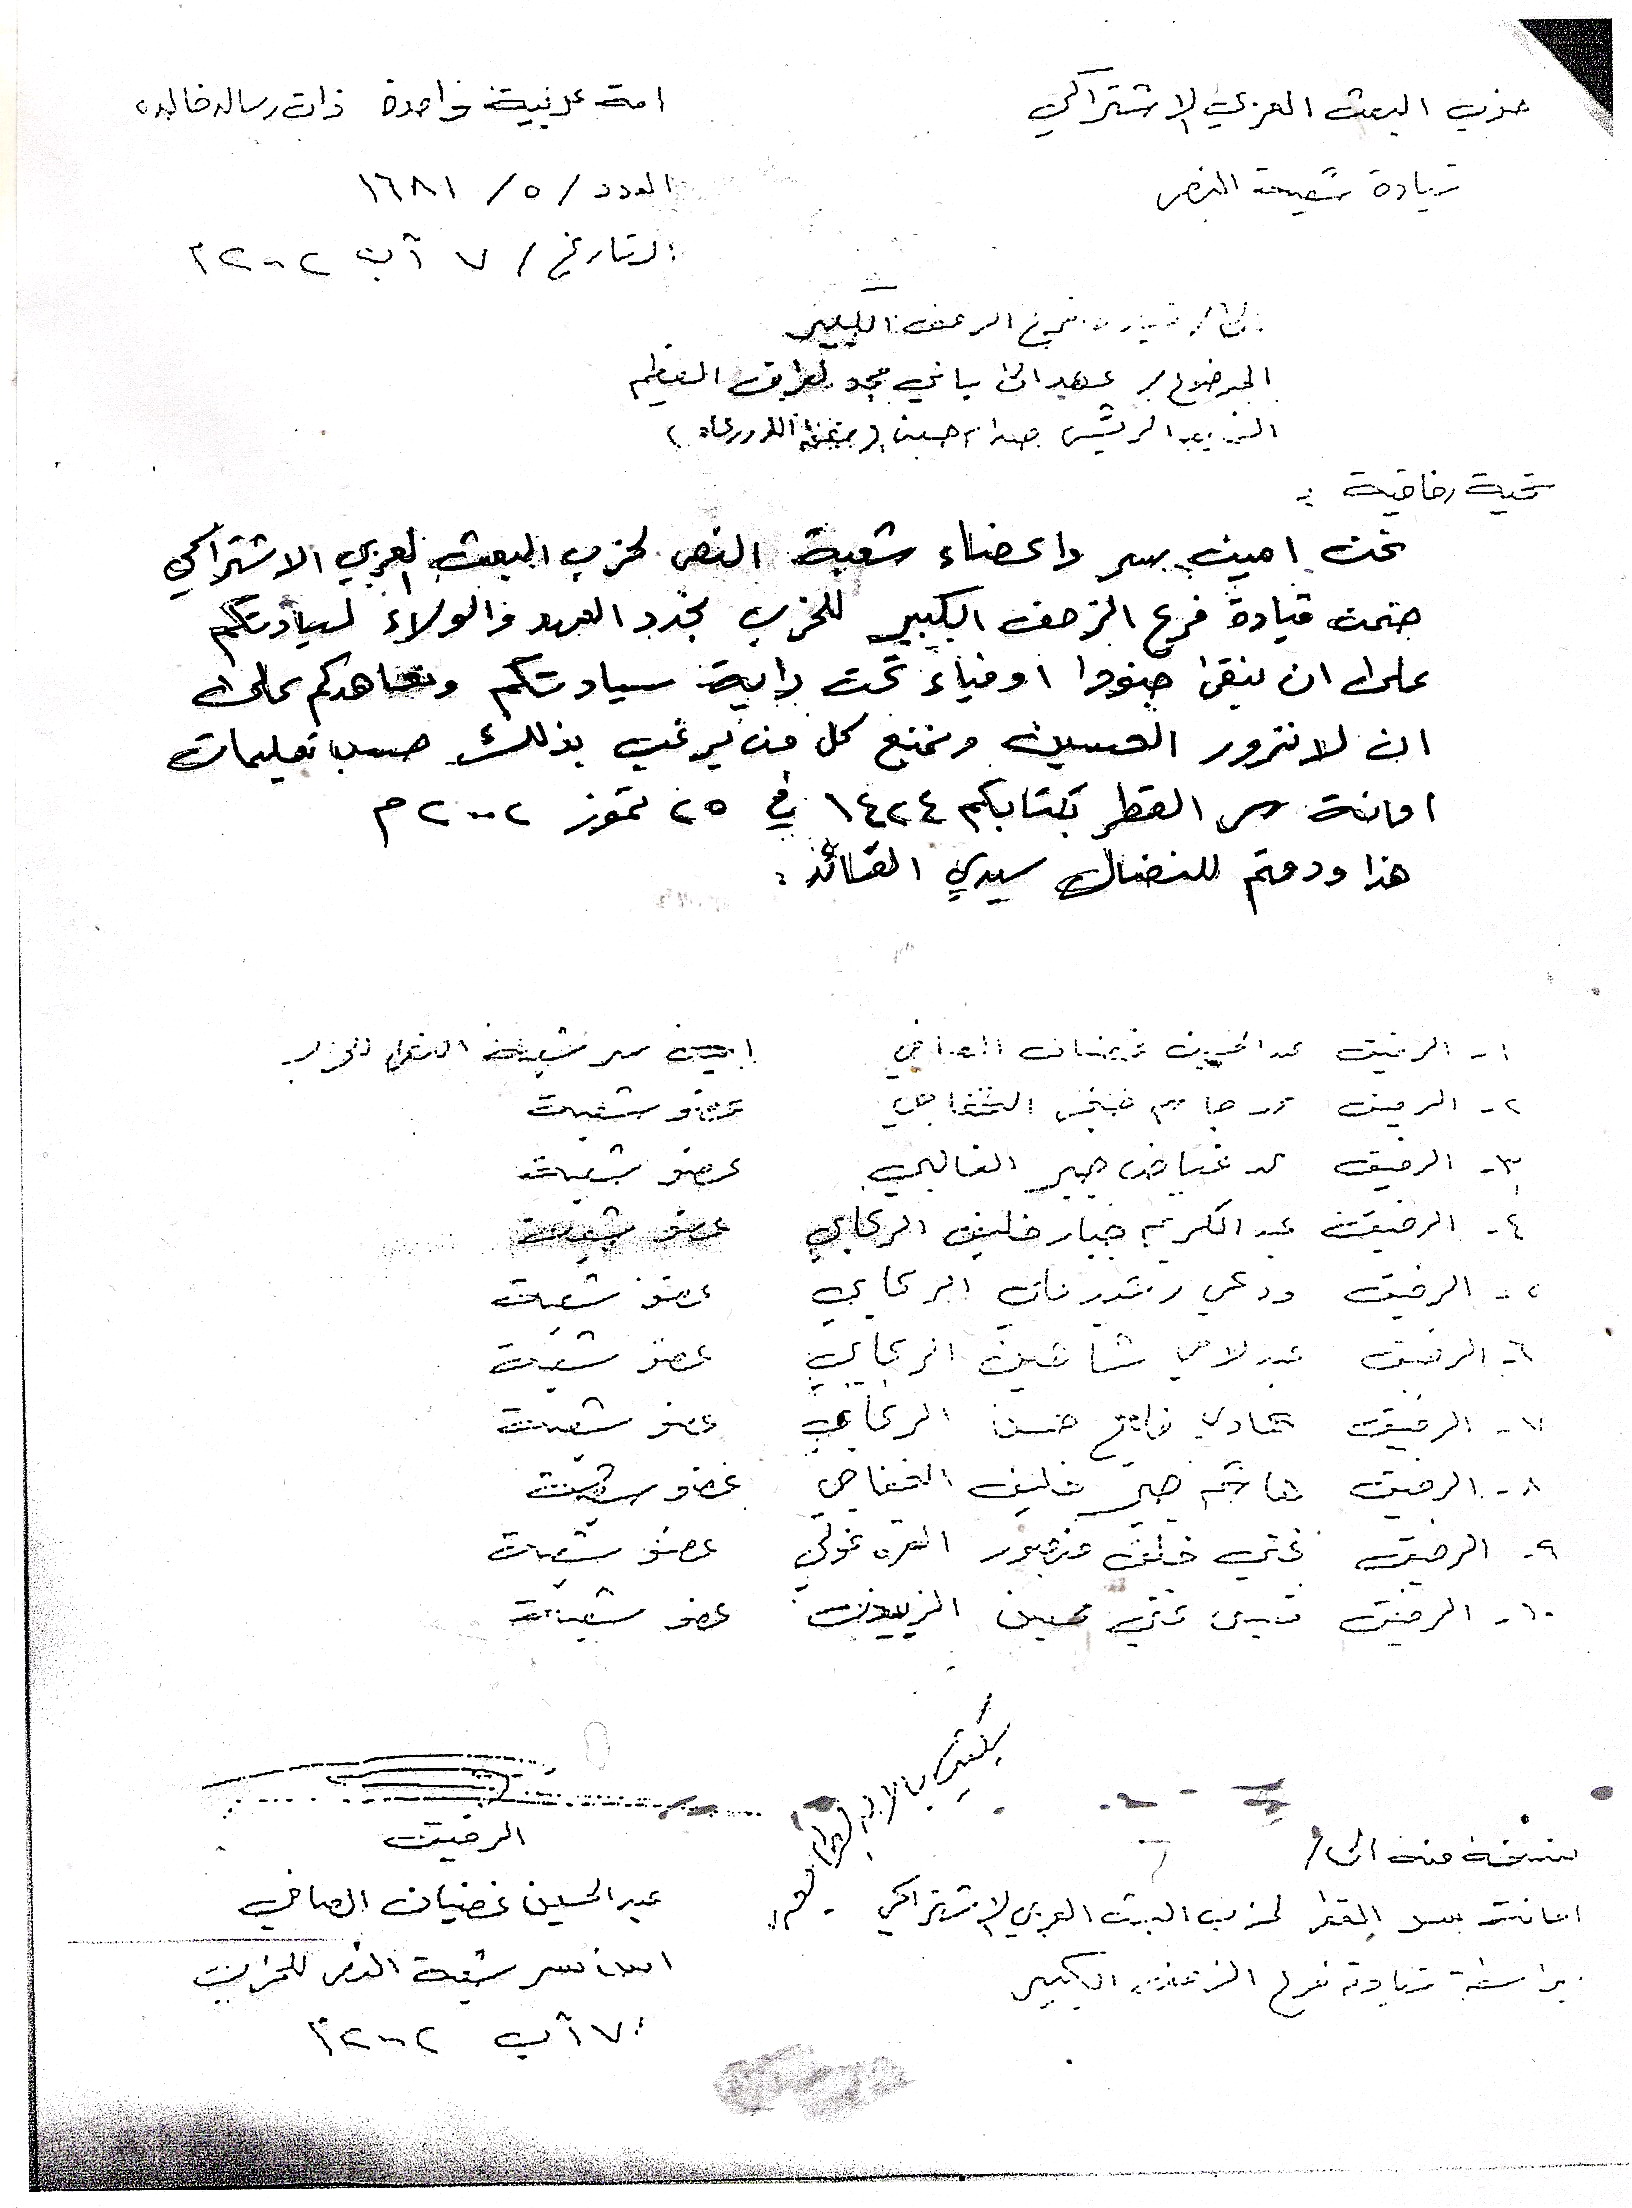 حزب البعث العربي الاشتراكي
امة عربية واحدة ذات رسالة خالدة
قيادة شعبة النصر
العدد / ٥ / ١٦٨١
التاريخ / ٧ آب ٢٠٠٢ م
الى / قيادة فرع الزحف الكبير
الموضوع / عهد الى باني مجد العراق العظيم
السيد الرئيس صدام حسين (حفظه الله ورعاه)
تحية رفاقية :
نحن امين سر واعضاء شعبة النصر لحزب البعث العربي الاشتراكي
ضمن قيادة فرع الزحف الكبير للحزب نجدد العهد والولاء لسيادتكم
على ان نبقى جنودا اوفياء تحت راية سيادتكم ونعاهدكم على
ان لا نزور الحسين ونمنع كل من يرغب بذلك حسب تعليمات
امانة سر القطر بكتابكم ١٤٢٤ في ٢٥ تموز ٢٠٠٢ م
هذا ودمتم للنضال سيدي القائد :
١- الرفيق عبد الحسين غضبان الصافي امين سر شعبة النصر للحزب
٢- الرفيق جاسم الخفاجي عضو شعبة
٣- الرفيق جبر الغالبي عضو شعبة
٤- الرفيق عبد الكريم جبار خليف الركابي عضو شعبة
٥- الرفيق الركابي عضو شعبة
٦- الرفيق شاهين الركابي عضو شعبة
٧- الرفيق هادي حسن الركابي عضو شعبة
٨- الرفيق هاشم جبر خليف الخفاجي عضو شعبة
٩- الرفيق خلف منصور القره غولي عضو شعبة
١٠- الرفيق عضو شعبة
الرفيق
عبد الحسين غضبان الصافي
امين سر شعبة النصر للحزب
٧ آب ٢٠٠٢ م
نسخة منه الى /
امانة سر القطر لحزب البعث العربي الاشتراكي
بواسطة قيادة فرع الزحف الكبير